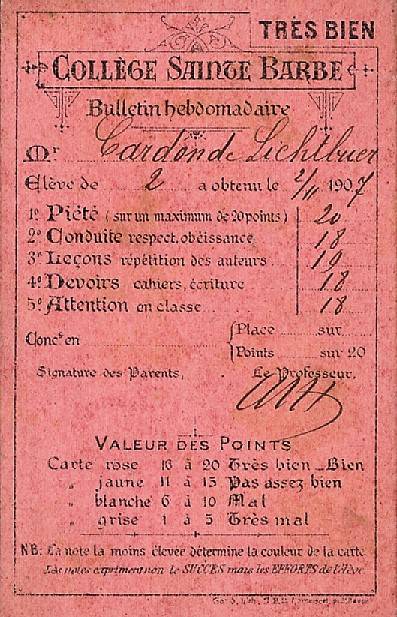 TRÈS BIEN
COLLÈGE SAINTE BARBE
Bulletin hebdomadaire
Mr Cardon de Lichtbuer
Elève de 2 a obtenu le 2/11 1907
1º Piété (sur un maximum de 20 points) 20
2º Conduite respect, obéissance 18
3º Leçons répétition des auteurs 19
4º Devoirs cahiers, écriture 18
5º Attention en classe 18
Concrs en { Place sur
Points sur 20
Signature des Parents, Le Professeur,
VALEUR DES POINTS
Carte rose 16 à 20 Très bien _ Bien
" jaune 11 à 15 Pas assez bien
" blanche 6 à 10 Mal
" grise 1 à 5 Très mal
NB: La note la moins élevée détermine la couleur de la carte
Les notes expriment non le SUCCES mais les EFFORTS de l'élève
Gand, lith.